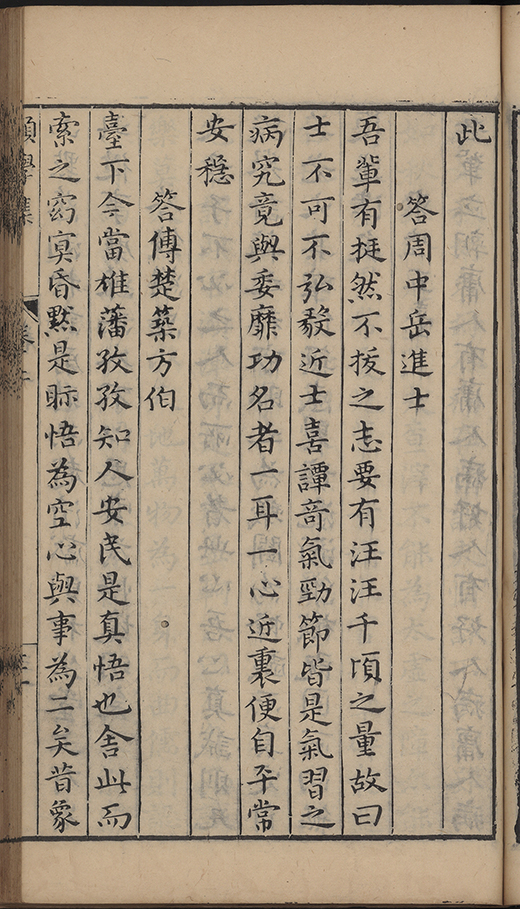 此
答周中岳進士
吾輩有挺然不拔之志要有汪汪千頃之量故曰
士不可不弘毅近士喜譚奇氣勁節皆是氣習之
病究竟與委靡功名者一耳一心近裏便自平常
安穩
答傅楚築方伯
臺下今當雄藩孜孜知人安民是真悟也舍此而
索之窈冥昏默是眎悟為空心與事為二矣昔象
願學集